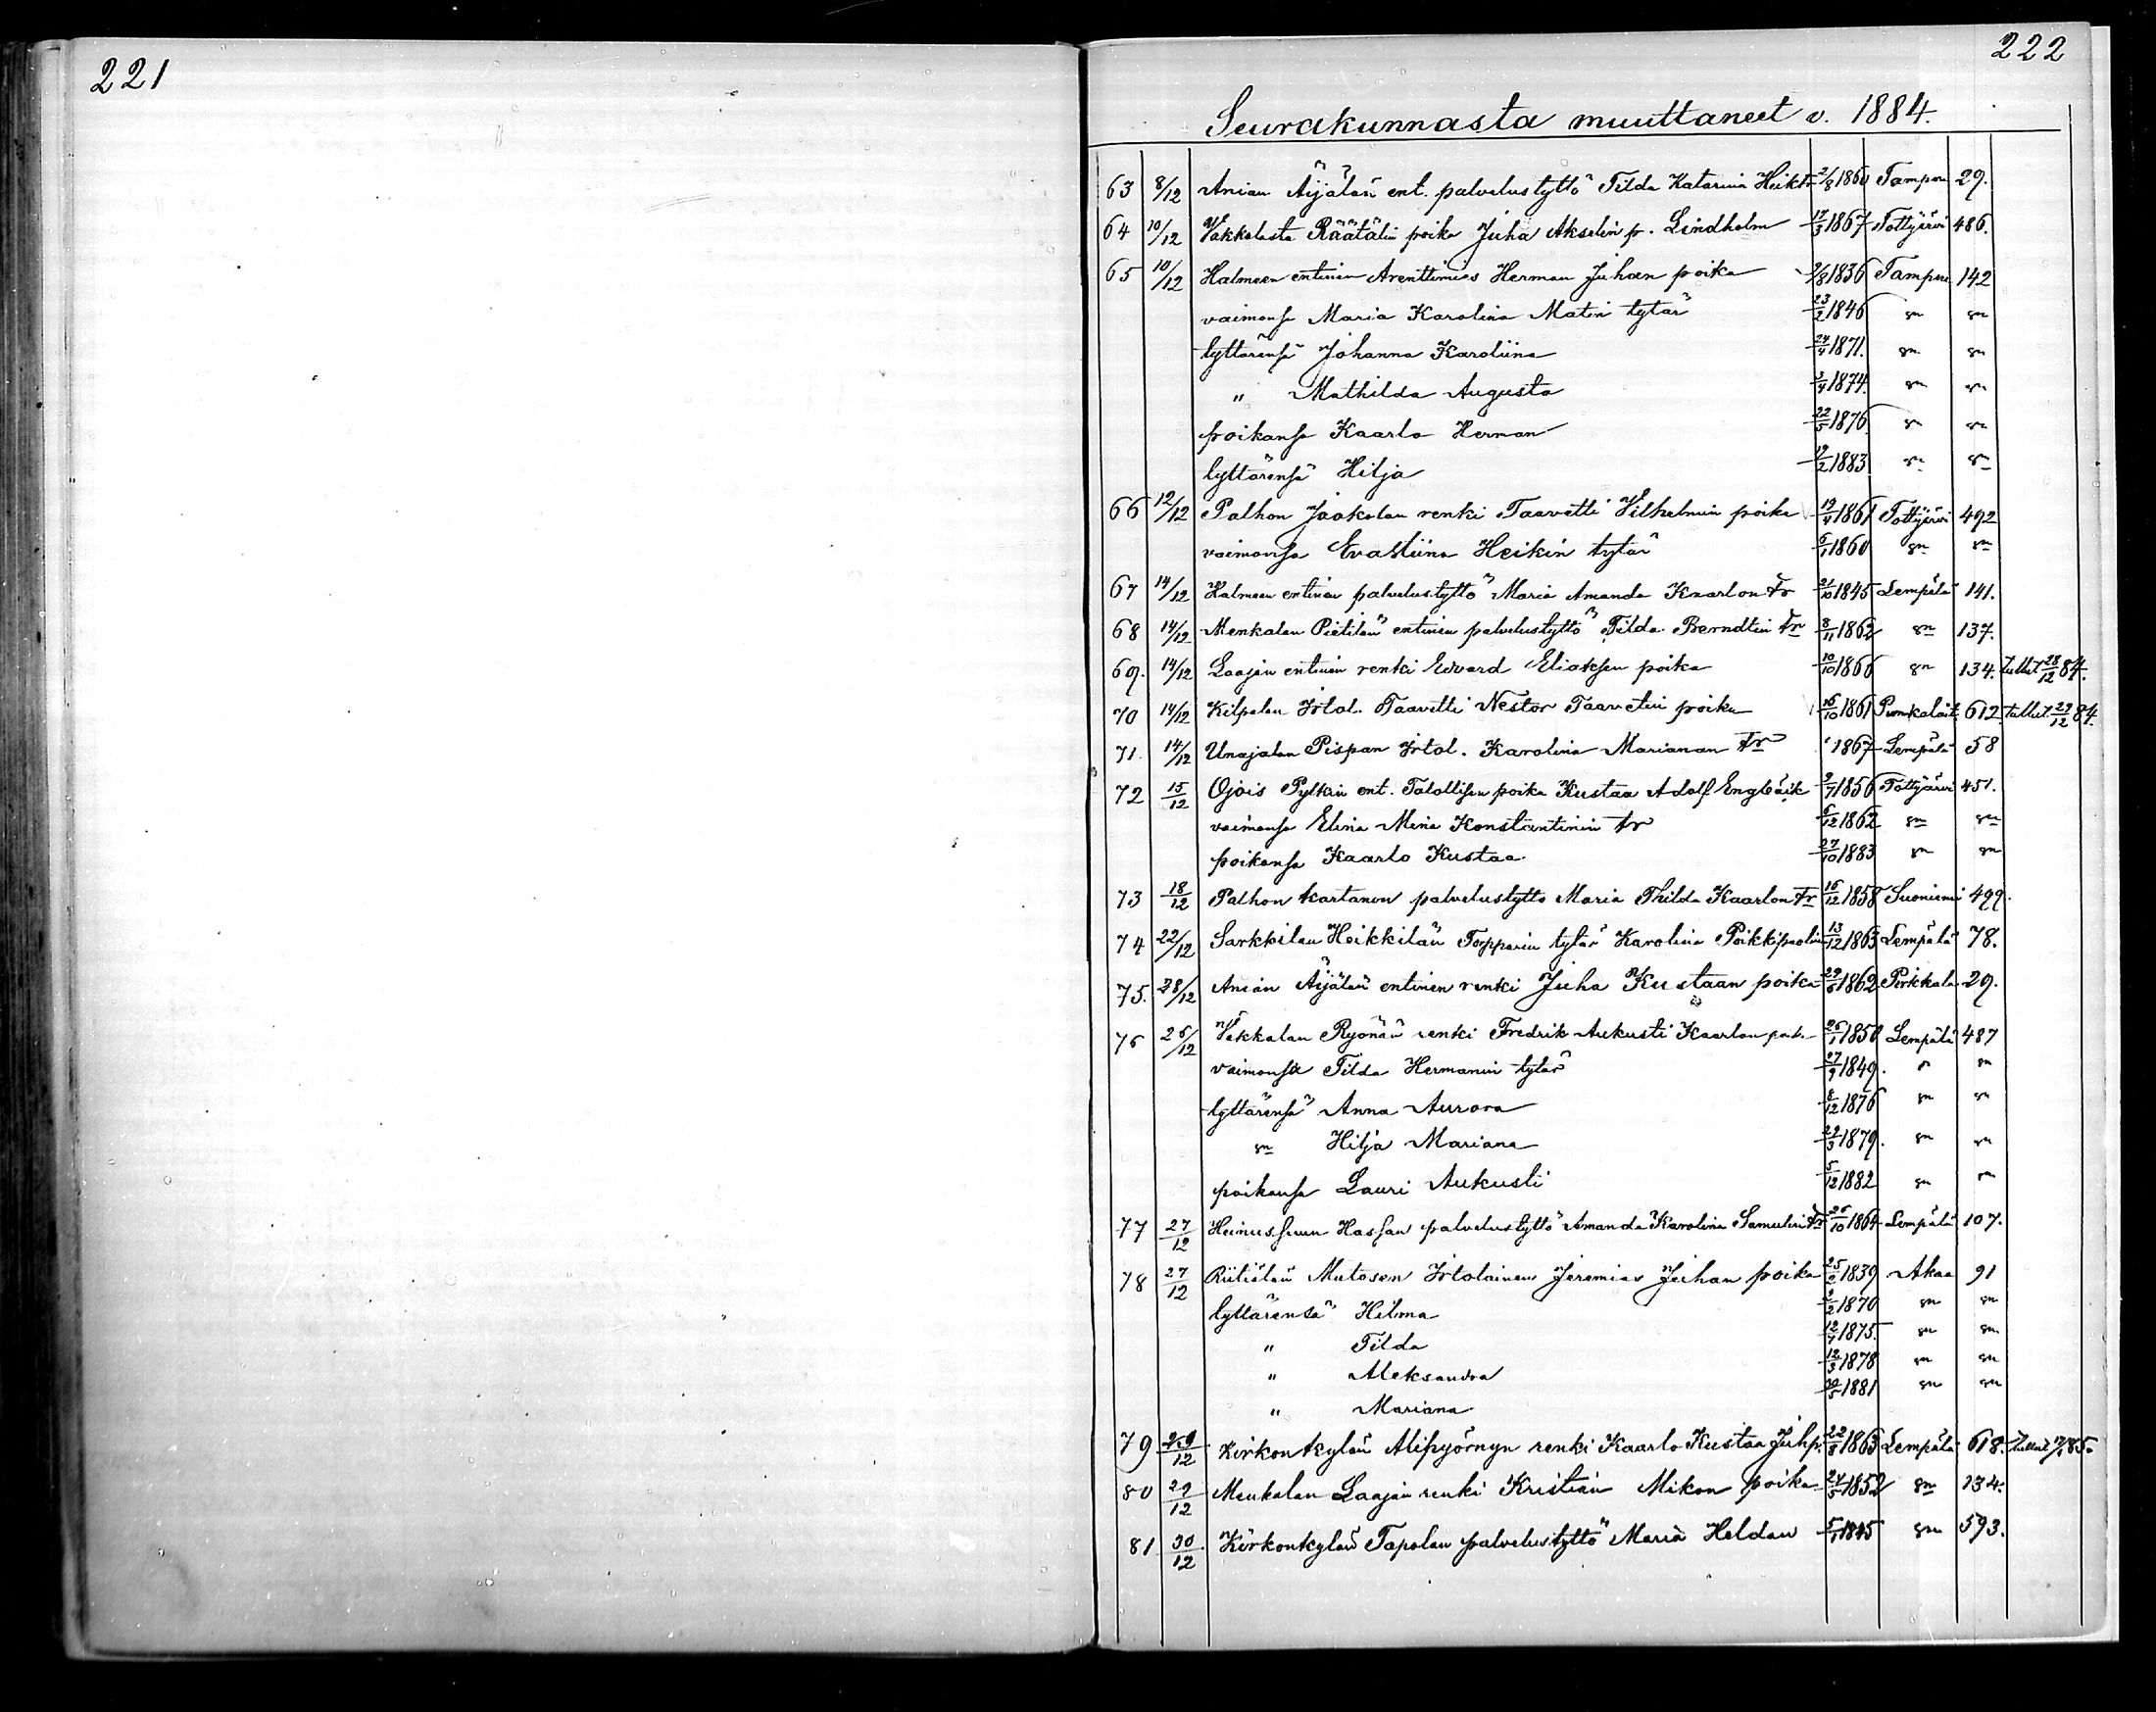 221
222
Seurakunnasta muuttaneet v. 1884.
63 8/12 Anian Äijälän ent. palvelustyttö Tilda Katarina Heikin 2/8 1860 Tampere 29.
64 10/12 Vakkalasta Räätälin poika Juha Akselin p. Lindholm 17/3 1867 Tottijärvi 486.
65 10/12 Halmeen entinen Arenttimies Herman Juhan poika 2/8 1836 Tampere 142
vaimonsa Maria Karolina Matin tytär 23/2 1846 sn sn
tyttärensä Johanna Karoliina 24/4 1871. sn sn
" Mathilda Augusta 3/4 1874. sn sn
poikansa Kaarlo Herman 22/5 1876. sn sn
tyttärensä Hilja 19/2 1883 sn sn
66 12/12 Palhon Jaakolan renki Taavetti Vilhelmin poika 19/4 1861 Tottijärvi 492
vaimonsa Evastiina Heikin tytär 6/1 1860 sn sn
67 14/12 Halmeen entinen palvelustyttö Maria Amanda Kaarlon tr 21/10 1845 Lempälä 141.
68 14/12 Menkalan Pietilän entinen palvelustyttö Tilda Berndtin tr 8/11 1862 sn 137.
69. 14/12 Laajan entinen renki Edvard Eliaksen poika 10/10 1866 sn 134. tullut 28/12 84.
70 14/12 Kilpalan Irtol. Taavetti Nestor Taavetin poika 16/10 1861 Punkalait. 612. tullut 29/12 84.
71. 14/12 Unajalan Pispan Irtol. Karolina Marianan tr 1867 Lempälä 58
72 15/12 Ojois Pytkin ent. Talollisen poika Kustaa Adolf Engbäik 9/7 1856 Tottijärvi 451.
vaimonsa Elina Mina Konstantinin tr 6/12 1862 sn sn
poikansa Kaarlo Kustaa. 27/10 1883 sn sn
73 18/12 Palhon kartanon palvelustyttö Maria Thilda Kaarlon tr 16/12 1858 Suoniemi 499.
74 22/12 Sarkkilan Heikkilän Torpparin tytär Karolina Poikkipuolin 13/12 1863 Lempälä 78.
75. 28/12 Anian Äijälän entinen renki Juha Kustaan poika 29/6 1862 Pirkkala 29.
76 26/12 Vakkalan Ryönän renki Fredrik Aukusti Kaarlon poik. 26/1 1850 Lempälä 487
vaimonsa Tilda Hermanin tytär 27/9 1849. " sn
tyttärensä Anna Aurora 8/12 1876 sn sn
sn Hilja Mariana 29/3 1879. sn sn
poikansa Lauri Aukusti 5/12 1882 sn sn
77 27/12 Heinussuun Hassan palvelustyttö Amanda Karolina Samulin tr 26/10 1864 Lempälä 107.
78 27/12 Riitiälän Mutosen Irtolainen Jeremias Juhan poika 25/2 1839 Akaa 91
tyttärensä Hilma 2/2 1870 sn sn
" Tilda 12/4 1875. sn sn
" Aleksandra 12/3 1878 sn sn
" Mariana 30/5 1881 sn sn
79 29/12 Kirkonkylän Alipyörnyn renki Kaarlo Kustaa Juh p. 22/8 1863 Lempälä 618. tullut 85.
80 29/12 Menkalan Laajan renki Kristian Mikon poika 24/5 1852 sn 134.
81 30/12 Kirkonkylän Tapolan palvelustyttö Maria Heldan 5/1 1845 sn 593.